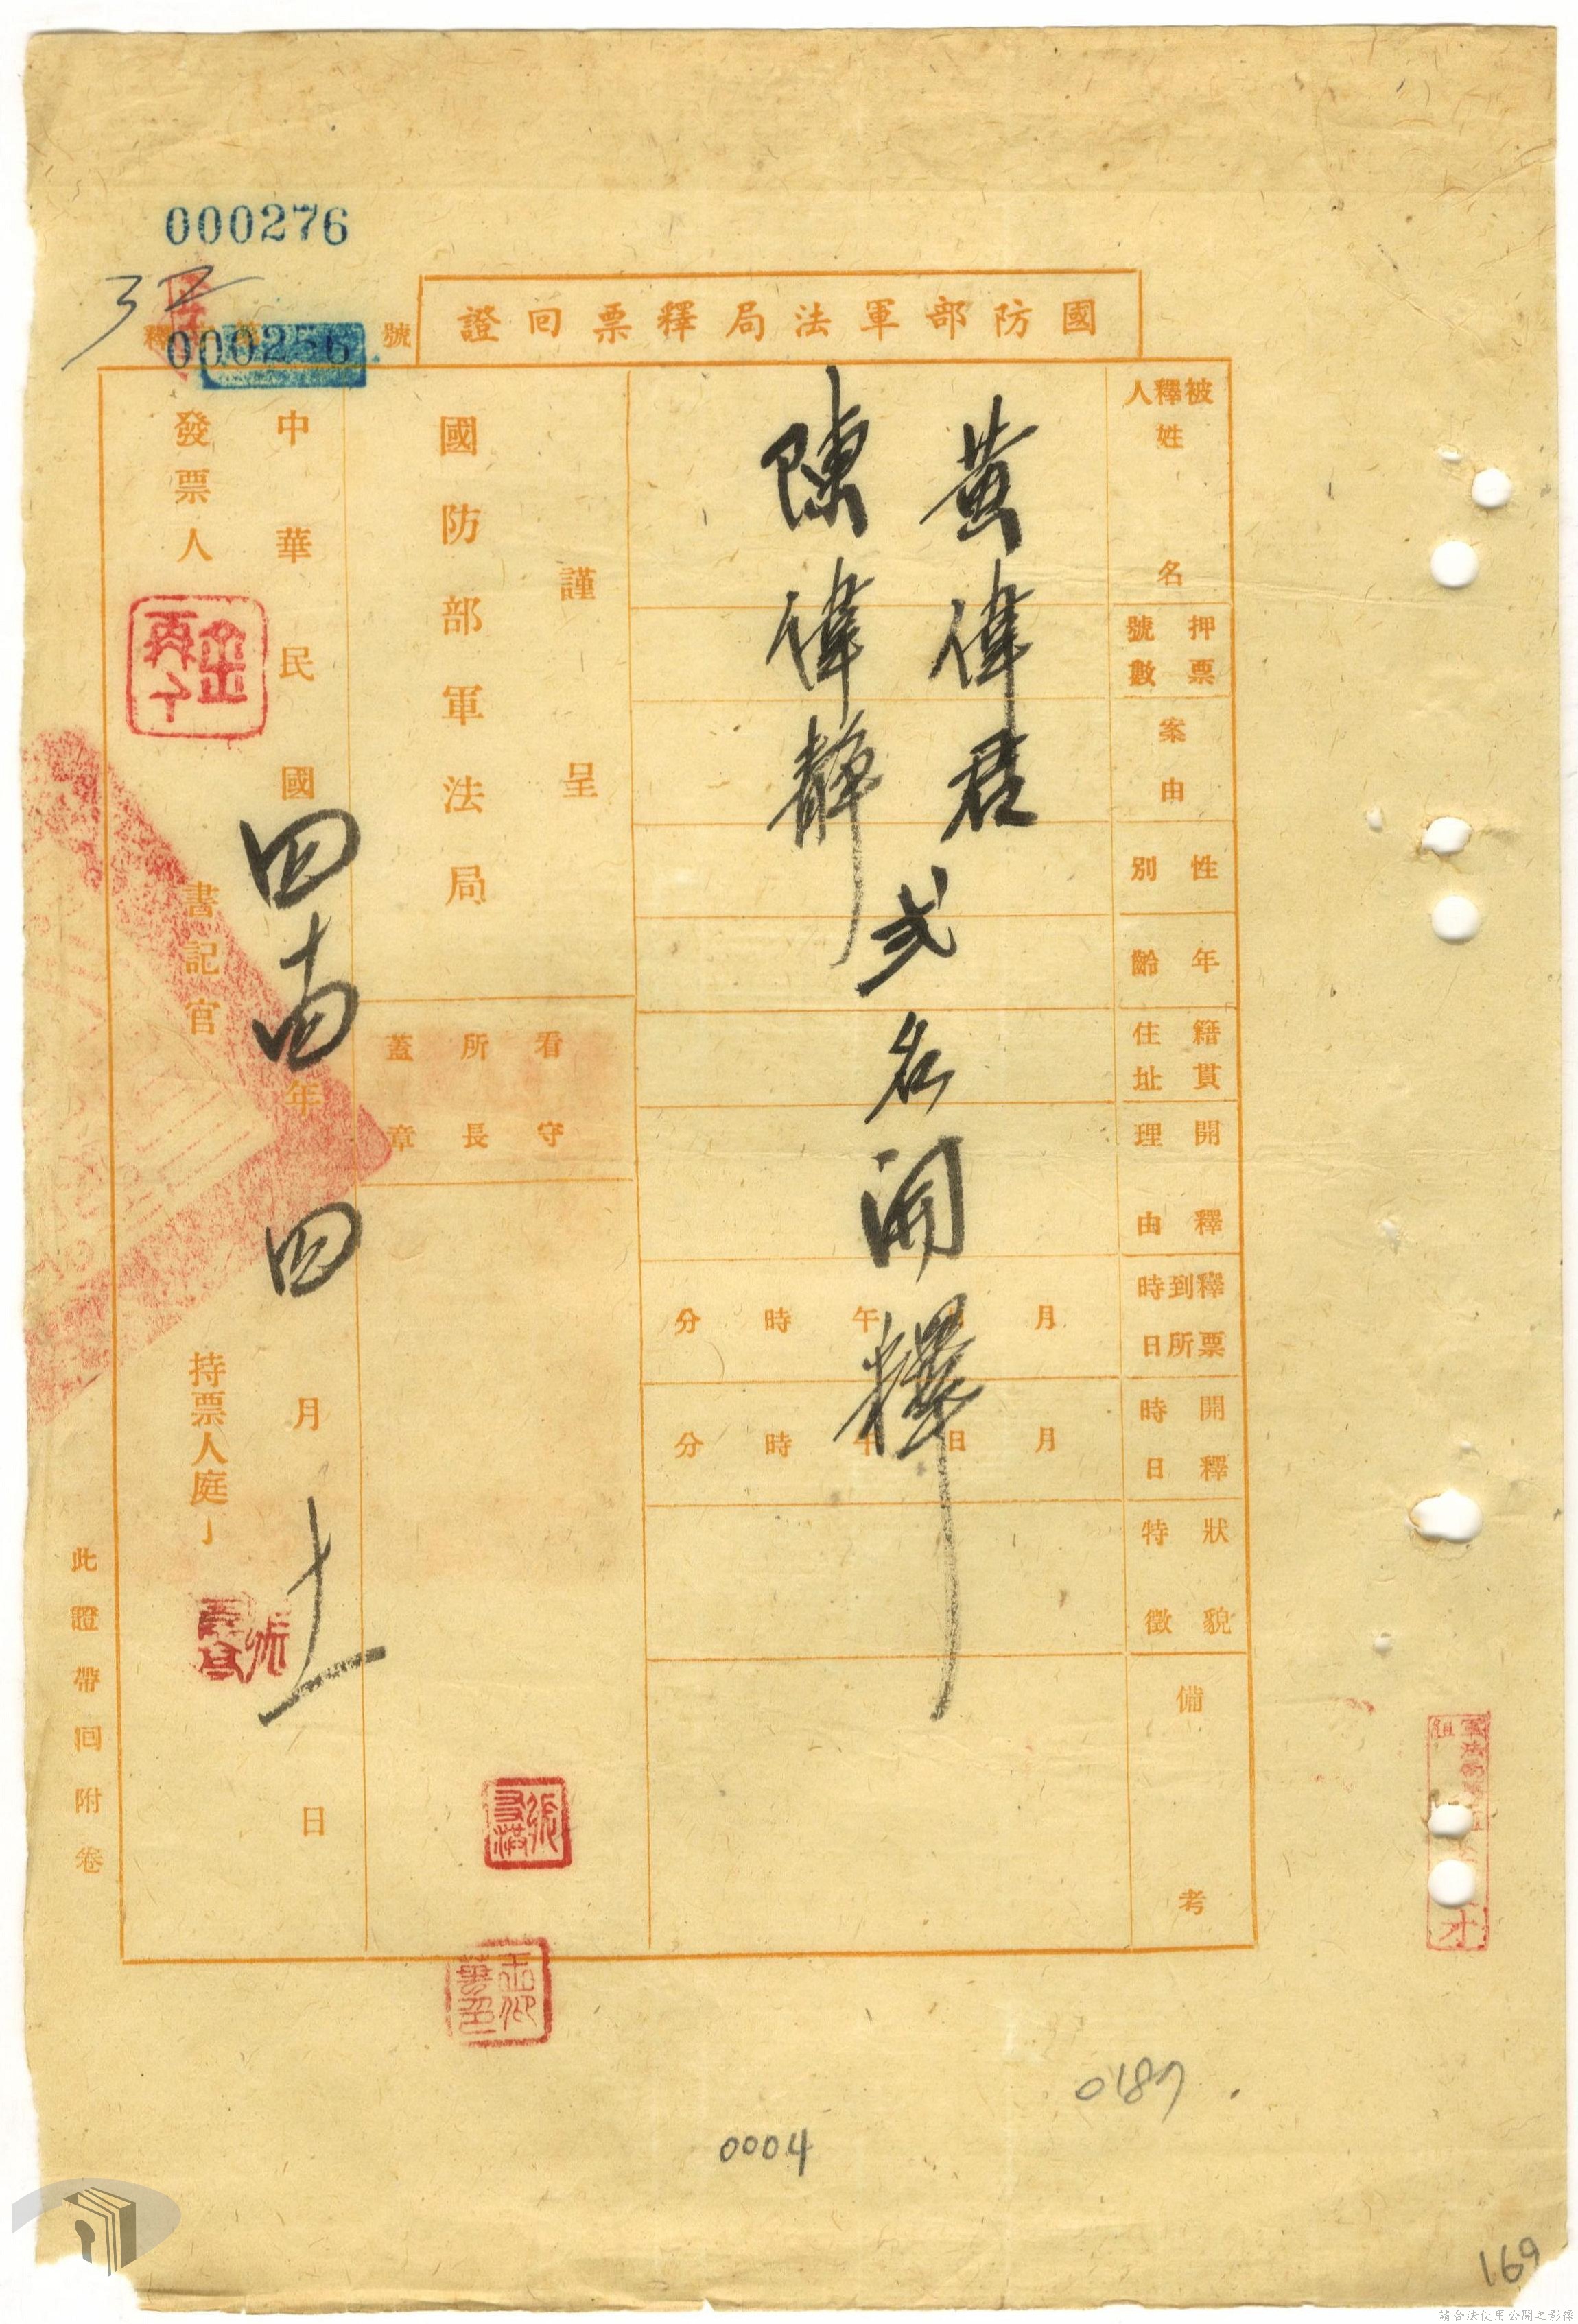 000276
000256
釋
號
國防部軍法局釋票回證
被釋人姓名
押票號數
案由
性別
年齡
籍貫住址
開釋理由
釋票到所時日
開釋時日
狀貌特徵
備考
黃偉君
陳偉靜
弍名開釋
月
午
時
分
月
日
午
時
分
謹呈
國防部軍法局
看守所長蓋章
中華民國四十四年四月十一日
發票人
書記官
持票人庭丁
此證帶回附卷
0187
0004
169
請合法使用公開之影像